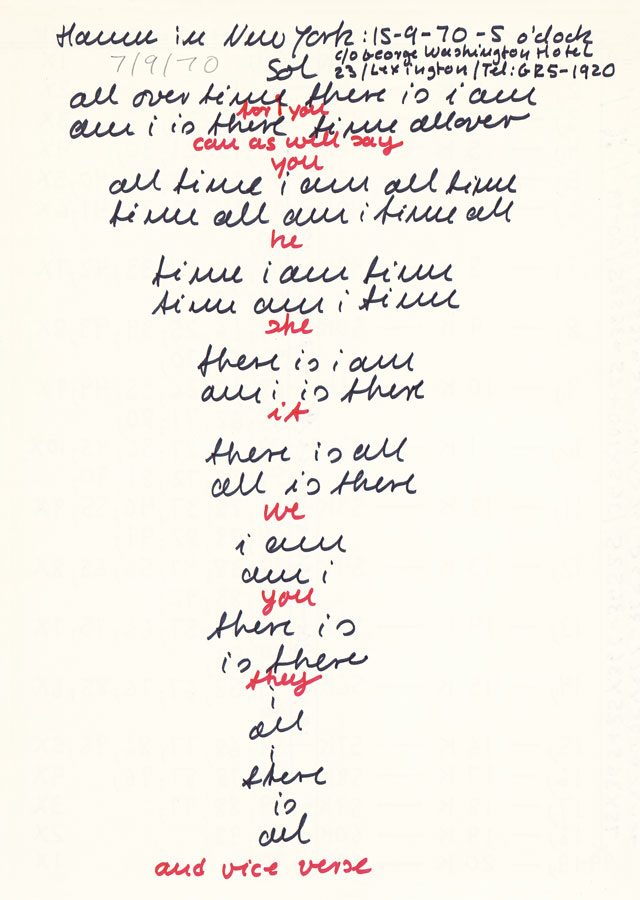 Hanne in New York: 15-9-70-5 o'clock
c/o George Washington Hotel
7/9/70
Sol
23/Lexington/Tel: GR5-1920
all over time there is i am
for you
am i is there time allover
can as will say
you
all time i am all time
time all am i time all
he
time i am time
time am i time
she
there is i am
am i is there
it
there is all
all is there
we
i am
am i
you
there is
is there
they
i
all
i
there
is
all
and vice verse